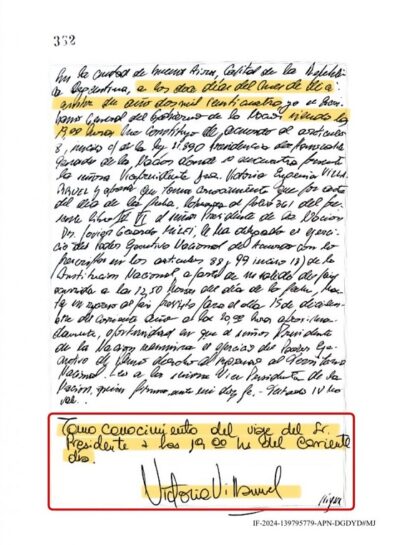 352
En la ciudad de Buenos Aires, Capital de la República
Argentina, a los doce días del mes de di
ciembre del año dos mil veinticuatro, yo el Escri
bano General del Gobierno de la Nación, siendo las
19,00 horas me constituyo de acuerdo al artículo
8, inciso c) de la ley 21.890
la señora Vicepresidente Dra. Victoria Eugenia VILLA
RRUEL y que toma conocimiento que por acta
del día de la fecha, al folio 361 del pre
sente libro Nº VI el señor Presidente de la Nación
Dr. Javier Gerardo MILEI, le ha delegado el ejerci
cio del Poder Ejecutivo Nacional de acuerdo con lo
prescripto en los artículos 88 y 99 inciso 18) de la
Constitución Nacional, a partir de su salida del país
a las 12,50 horas del día de la fecha, has
ta su regreso al país previsto para el día 15 de diciem
bre del corriente año a las 20,30 horas aproxima
damente, oportunidad en que el señor Presidente
de la Nación reasumirá el ejercicio del Poder Eje
cutivo de pleno derecho al regresar al territorio
Nacional. Leo a la señora Vice Presidente de la
Nación, quien firma ante mí, doy fe.-
Tomo conocimiento del viaje del Sr.
Presidente a las 19 00 hs del corriente
día.
Victoria Villarruel
IF-2024-139795779-APN-DGDYD#MJ